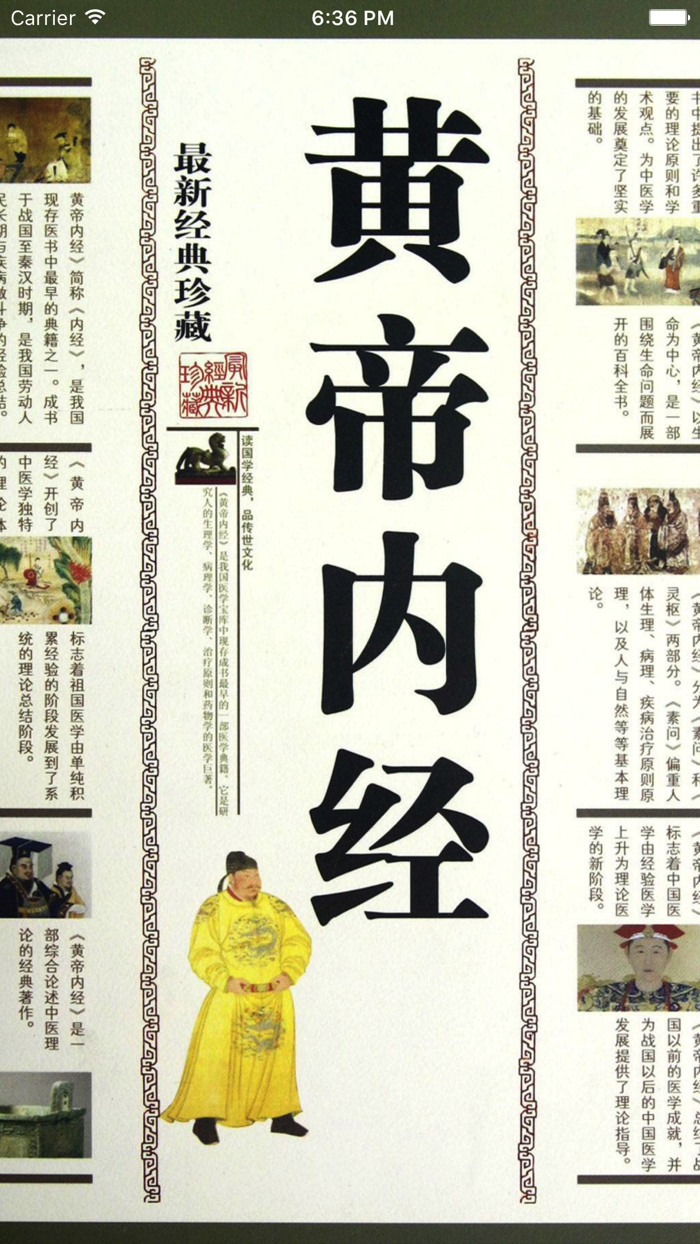 Carrier
6:36 PM
书中提出了许多重
要的理论原则和学
术观点。为中医学
的发展奠定了坚实
的基础。
《黄帝内经》以生
命为中心，是一部
围绕生命问题而展
开的百科全书。
《黄帝内经》分为《素问》和《
灵枢》两部分。《素问》偏重人
体生理、病理、疾病治疗原则原
理，以及人与自然等等基本理
论。
《黄帝内经》
标志着中国医
学由经验医学
上升为理论医
学的新阶段。
《黄帝内经》总结了战
国以前的医学成就，并
为战国以后的中国医学
发展提供了理论指导。
黄帝内经
最新经典珍藏
最新
經典
珍藏
读国学经典，品传世文化
《黄帝内经》是我国医学宝库中现存成书最早的一部医学典籍。它是研
究人的生理学、病理学、诊断学、治疗原则和药物学的医学巨著。
黄帝内经》简称《内经》，是我国
现存医书中最早的典籍之一。成书
于战国至秦汉时期，是我国劳动人
民长期与疾病做斗争的经验总结。
《黄帝内
经》开创了
中医学独特
的理论体
标志着祖国医学由单纯积
累经验的阶段发展到了系
统的理论总结阶段。
《黄帝内经》是一
部综合论述中医理
论的经典著作。